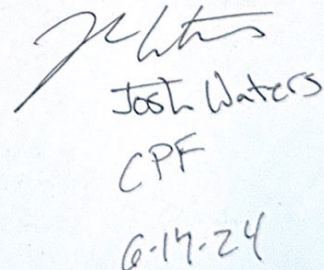 Josh Waters
CPF
6-17-24